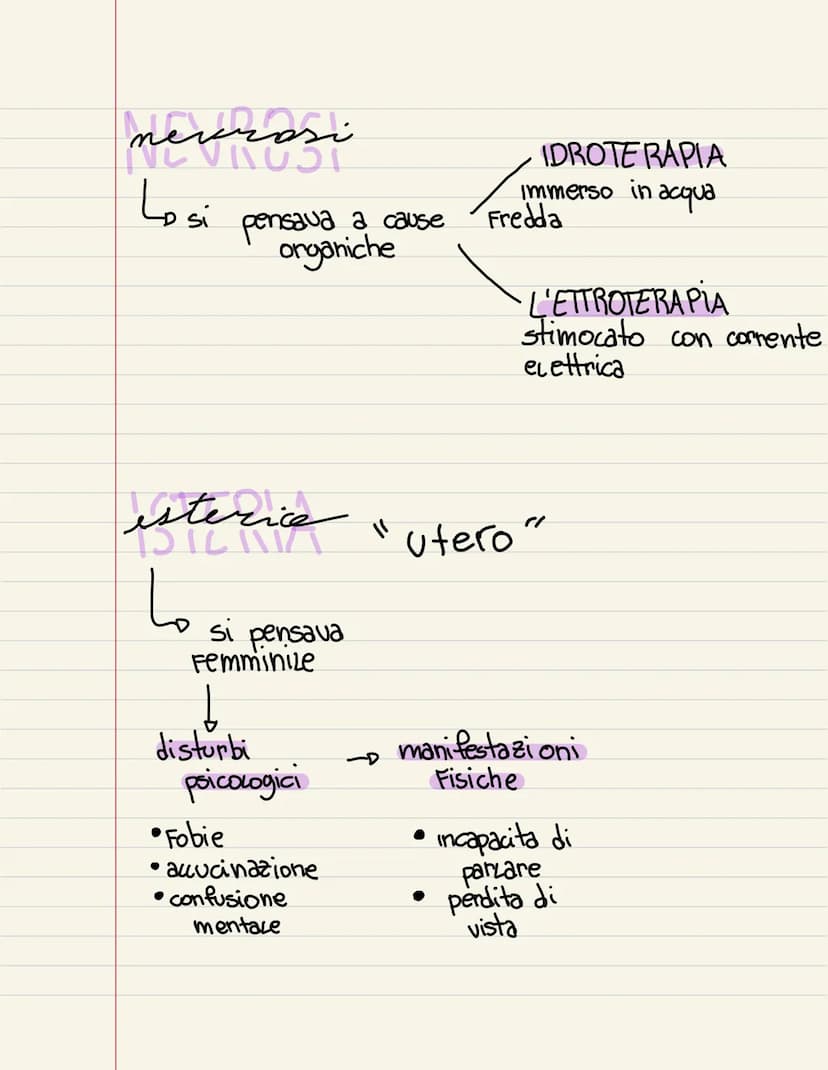 NEVROSI
nevrosi
si pensava a cause
organiche
IDROTERAPIA
immerso in acqua
Fredda
L'ETTROTERAPIA
stimolato con corrente
elettrica
ISTERIA
isteria
"utero"
si pensava
Femminile
disturbi
psicologici
manifestazioni
Fisiche
• Fobie
• allucinazione
• confusione
mentale
• incapacità di
parlare
• perdita di
vista